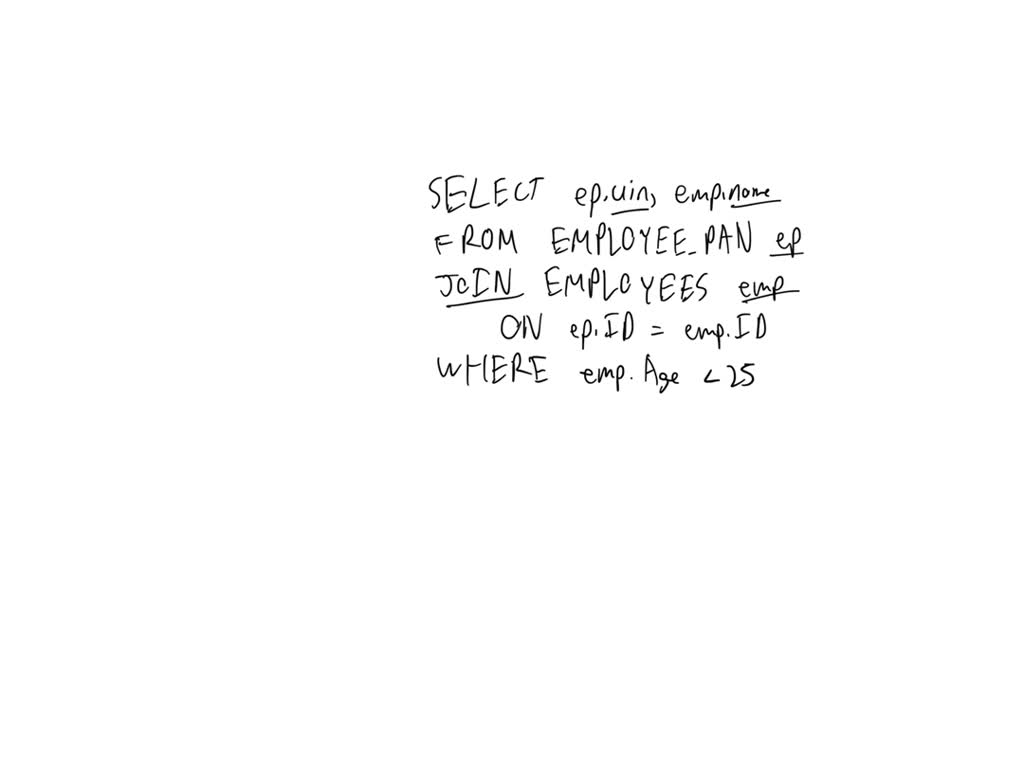 SELECT ep.uin, emp.name
FROM EMPLOYEE_PAN ep
JOIN EMPLOYEES emp
ON ep.ID = emp.ID
WHERE emp.Age < 25